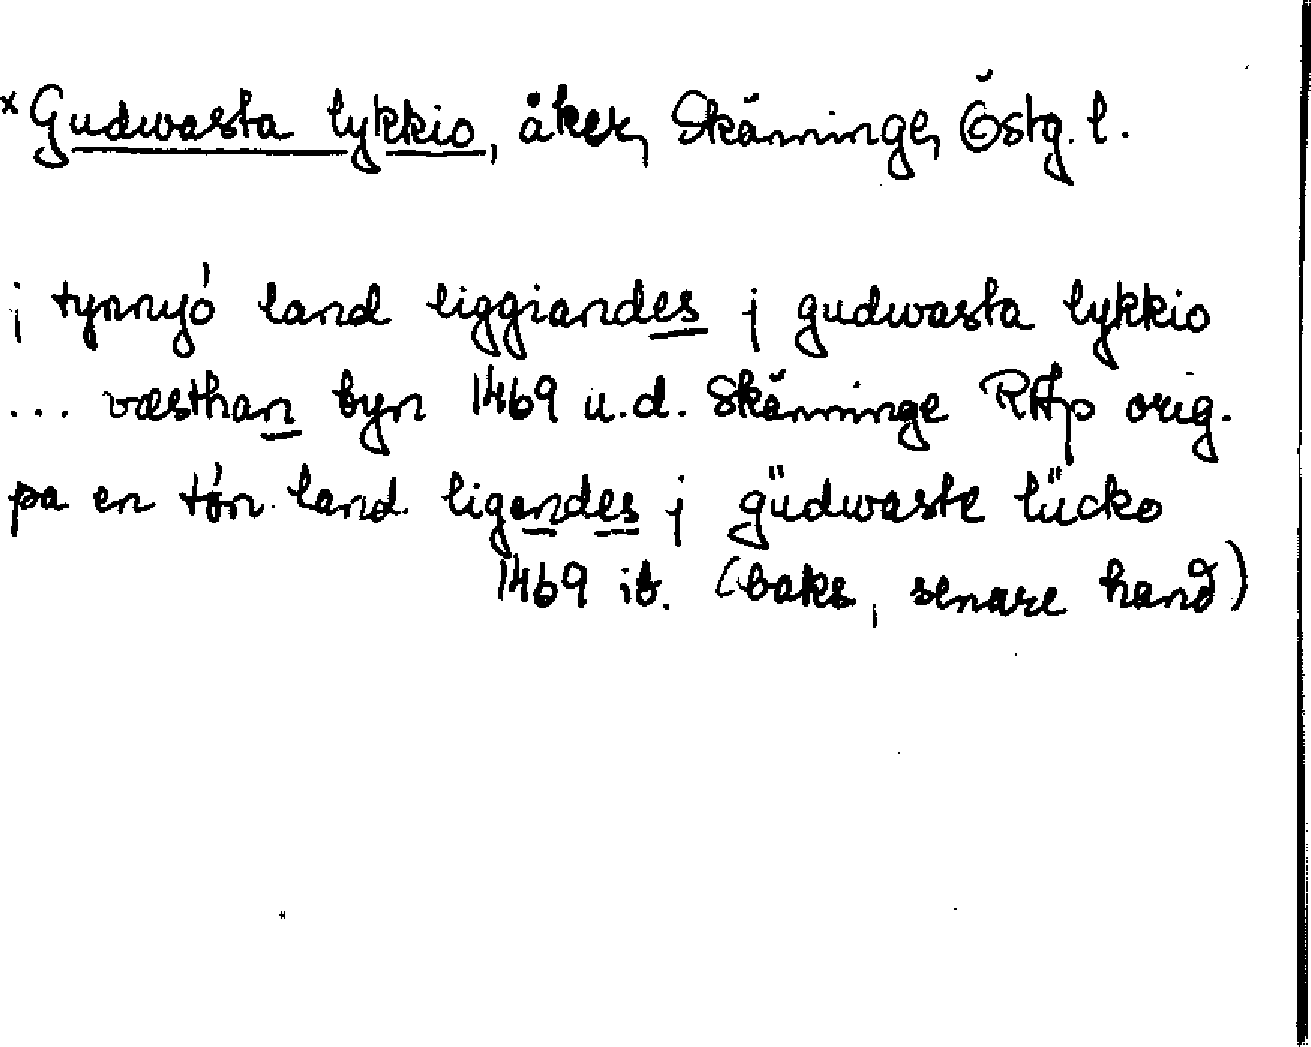 *Gudwasta lykkio, åker, Skänninge, Östg. l.
j tynnyó land liggiandes j gudwasta lykkio
... væsthan byn 1469 u.d. Skänninge RAp orig.
pa en tón land ligendes j güdwaste lücko
1469 ib. (baks, senare hand)